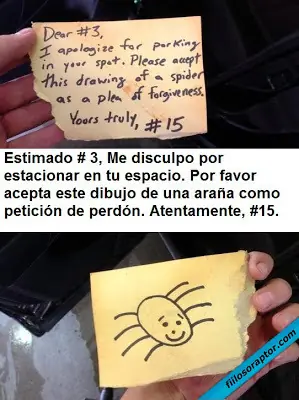 Dear #3,
I apologize for parking
in your spot. Please accept
this drawing of a spider
as a plea of forgiveness.
Yours truly, #15
Estimado # 3, Me disculpo por
estacionar en tu espacio. Por favor
acepta este dibujo de una araña como
petición de perdón. Atentamente, #15.
fiilosoraptor.com